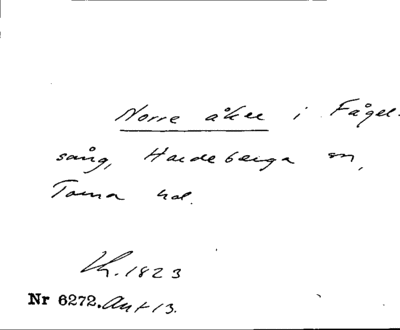 Norre åker i Fågel-
sång, Hardeberga sn,
Torna hd.
Lh. 1823
Nr 6272. Ant 13.